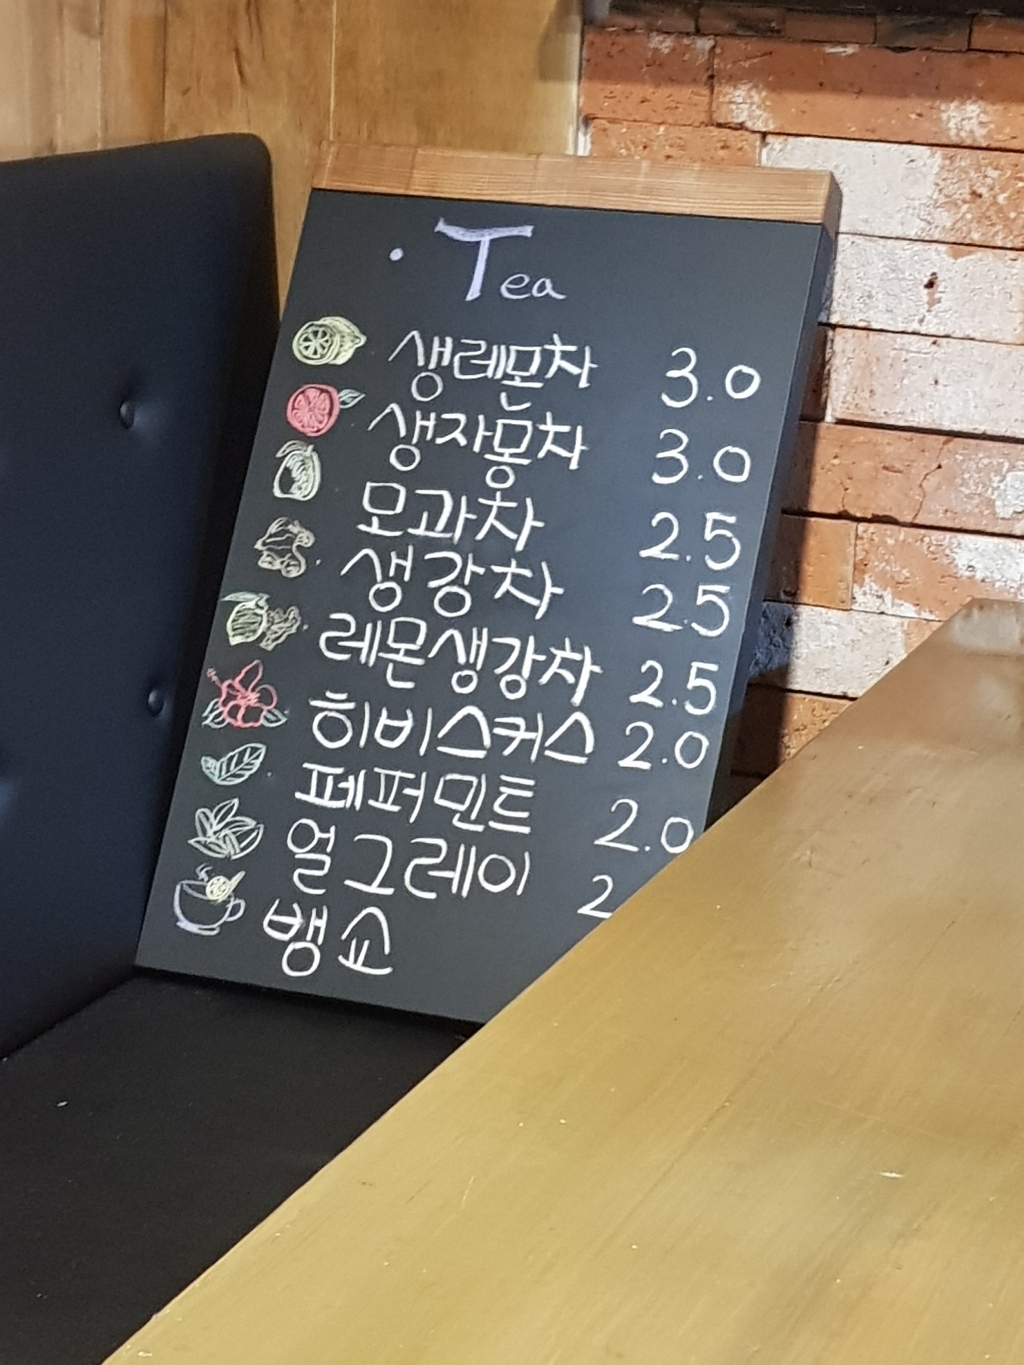 · Tea
생레몬차 3.0
생자몽차 3.0
모과차 2.5
생강차 2.5
레몬생강차 2.5
히비스커스 2.0
페퍼민트 2.0
얼그레이 2
뱅쇼